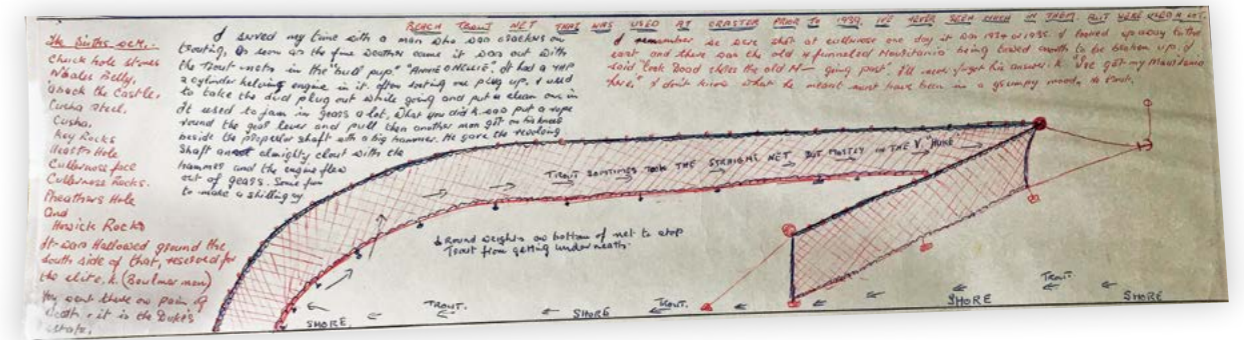 BEACH TROUT NET THAT WAS USED AT CRASTER PRIOR TO 1939. I'VE NEVER SEEN MUCH IN THEM. BUT WERE USED A LOT.
The Births were:-
Chuck hole stones
Nbales Belly,
aback the Castle,
Cusha Steel.
Cusha.
Key Rocks
Heasts Hole
Cullernose face
Cullernose Rocks.
Hole
and
Howick Rocks
It was Hallowed ground the
South side of that, reserved for
the elite, h. (Boulmer men)
You went there on pain of
death, it is the Duke's
estate.
I served my time with a man who was crackers on
trouting, as soon as the fine weather came it was out with
the trout-nets in the "bull pup." "ANNIE & NELLIE". It had a 7HP
2 cylinder kelving engine in it. often oiling one plug up, I used
to take the dud plug out while going and put a clean one in
It used to jam in gears a lot. What you did h. was put a rope
round the gear lever and pull then another man got on his knees
beside the propeller shaft with a big hammer. He gave the revolving
Shaft an almighty clout with the
hammer and the engine flew
out of gears. Some fun
to make a shilling
I remember we were shot at cullernose one day it was 1934 or 1935. I looked up away to the
east and there was the old 4 funneled Mauritania being towed north to be broken up. I
said "look Dood theres the old M— going past". I'll never forget his answer. h. "I've got my Mauritania
here," I don't know what he meant must have been in a grumpy mood, no trout.
TROUT SOMETIMES TOOK THE STRAIGHT NET, BUT MOSTLY IN THE "V" HUKE
Round weights on bottom of net to stop
Trout from getting underneath.
SHORE. TROUT. SHORE TROUT. SHORE TROUT. SHORE